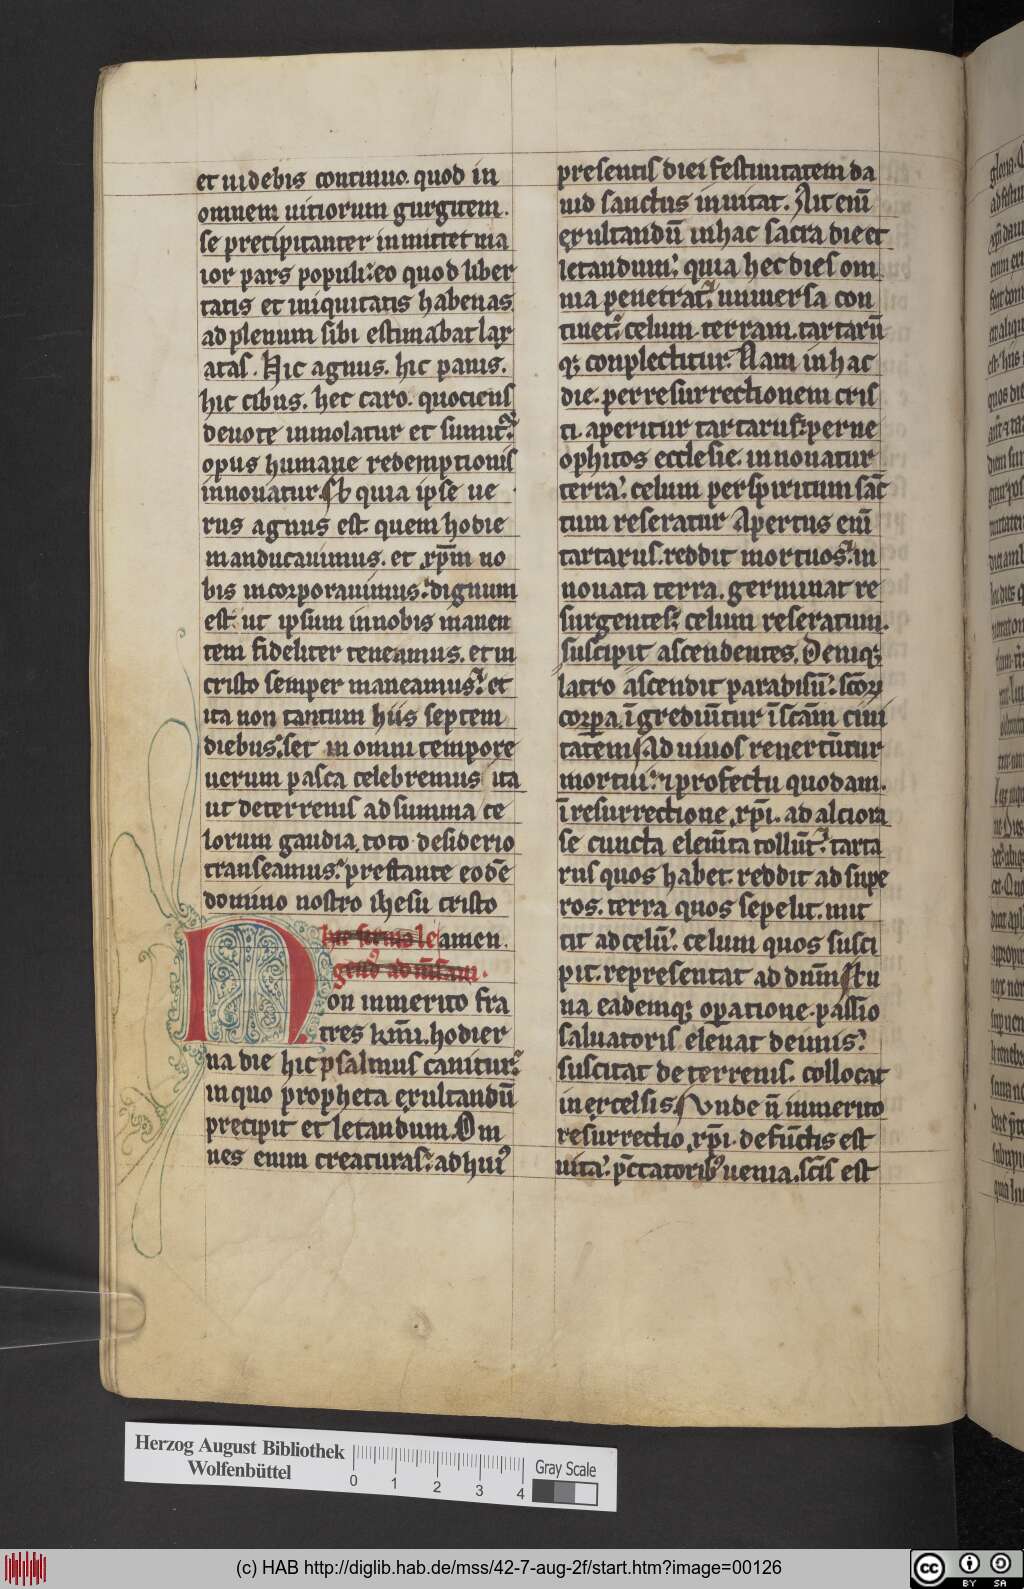 et uidebis continuo. quod in
omnem uitiorum gurgitem.
se precipitanter inmittet ma
ior pars populi. eo quod liber
tatis et iniquitatis habenas
ad plenum sibi estimabat lax
atas. Hic agnus. hic panis.
hic cibus. hec caro. quociens
deuote inmolatur et sumitur.
opus humane redemptionis
innouatur. Sed quia ipse ue
rus agnus est quem hodie
manducauimus. et xp̄m no
bis incorporauimus. dignum
est. ut ipsum in nobis manen
tem fideliter teneamus. et in
cristo semper maneamus. et
ita non tantum hiis septem
diebus. set in omni tempore
uerum pasca celebremus ita
ut deterrenis ad summa ce
lorum gaudia. toto desiderio
transeamus. prestante eodē
domino nostro ihesu cristo
hic sermo le amen.
gend' ad missam.
Non inmerito fra
tres km̄i. hodier
na die hic psalmus canitur.
in quo propheta exultandū
precipit et letandum. Om
nes enim creaturas. ad hui'
presentis diei festiuitatem da
uid sanctus inuitat. Ait enī
exultandū inhac sacra die et
letandum. quia hec dies om
nia penetrat. uniuersa con
tinet. celum. terram. tartarū
q; conplectitur. Nam in hac
die. per resurrectionem cris
ti. aperitur tartarus. per ne
ophitos ecclesie. innouatur
terra. celum per spiritum sāc
tum reseratur Apertus enī
tartarus. reddit mortuos. in
nouata terra. germinat re
surgentes. celum reseratum.
suscipit ascendentes. Deniq;
latro ascendit paradisū. scōꝝ
corpora īgrediūtur ī scām ciui
tatem Ad uiuos reuertūtur
mortui. ⁊ profectu quodam.
ī resurrectione xp̄i. ad alciora
se cuncta elemīta tollūt. tarta
rus quos habet. reddit ad supe
ros. terra quos sepelit. mit
tit ad celū. celum quos susci
pit. representat ad dnm̄ Et u
na eademq; operatione. passio
saluatoris eleuat de imis.
suscitat de terrenis. collocat
in excelsis. Unde n̄ inmerito
resurrectio xp̄i. defūctis est
uita. pc̄catorib' uenia. scīs est
Herzog August Bibliothek
Wolfenbüttel
0 1 2 3 4
Gray Scale
(c) HAB http://diglib.hab.de/mss/42-7-aug-2f/start.htm?image=00126
cc BY SA